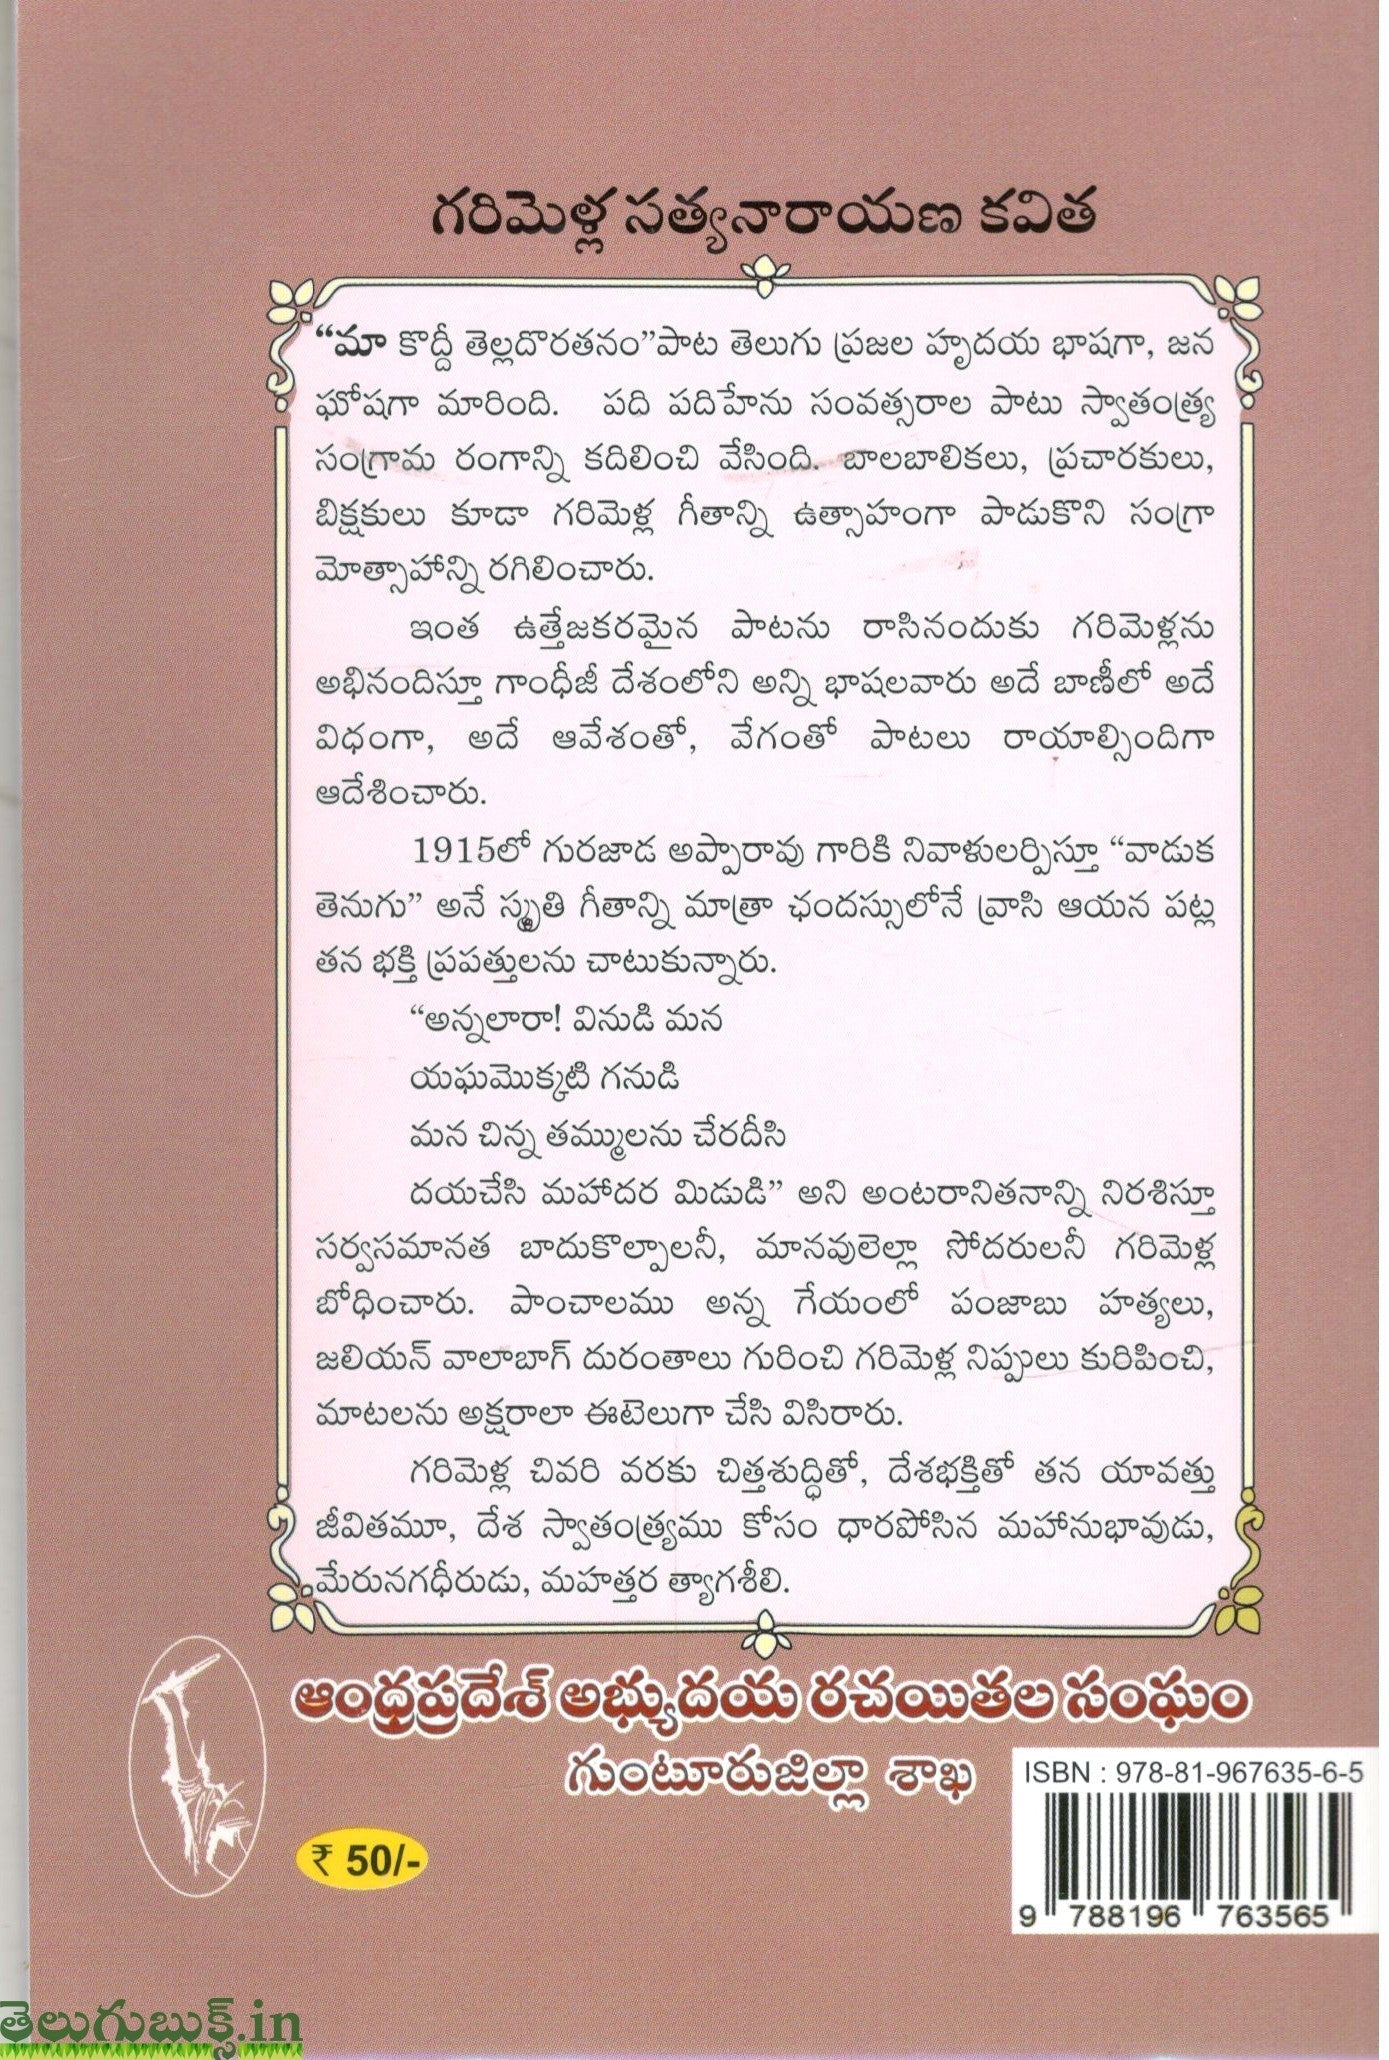 గరిమెళ్ల సత్యనారాయణ కవిత
“మా కొద్దీ తెల్లదొరతనం”పాట తెలుగు ప్రజల హృదయ భాషగా, జన
ఘోషగా మారింది. పది పదిహేను సంవత్సరాల పాటు స్వాతంత్ర్య
సంగ్రామ రంగాన్ని కదిలించి వేసింది. బాలబాలికలు, ప్రచారకులు,
బిక్షకులు కూడా గరిమెళ్ల గీతాన్ని ఉత్సాహంగా పాడుకొని సంగ్రా
మోత్సాహాన్ని రగిలించారు.
ఇంత ఉత్తేజకరమైన పాటను రాసినందుకు గరిమెళ్లను
అభినందిస్తూ గాంధీజీ దేశంలోని అన్ని భాషలవారు అదే బాణీలో అదే
విధంగా, అదే ఆవేశంతో, వేగంతో పాటలు రాయాల్సిందిగా
ఆదేశించారు.
1915లో గురజాడ అప్పారావు గారికి నివాళులర్పిస్తూ “వాడుక
తెనుగు” అనే స్మృతి గీతాన్ని మాత్రా ఛందస్సులోనే వ్రాసి ఆయన పట్ల
తన భక్తి ప్రపత్తులను చాటుకున్నారు.
“అన్నలారా! వినుడి మన
యఘమొక్కటి గనుడి
మన చిన్న తమ్ములను చేరదీసి
దయచేసి మహాదర మిడుడి” అని అంటరానితనాన్ని నిరశిస్తూ
సర్వసమానత బాదుకొల్పాలనీ, మానవులెల్లా సోదరులనీ గరిమెళ్ల
బోధించారు. పాంచాలము అన్న గేయంలో పంజాబు హత్యలు,
జలియన్ వాలాబాగ్ దురంతాలు గురించి గరిమెళ్ల నిప్పులు కురిపించి,
మాటలను అక్షరాలా ఈటెలుగా చేసి విసిరారు.
గరిమెళ్ల చివరి వరకు చిత్తశుద్ధితో, దేశభక్తితో తన యావత్తు
జీవితమూ, దేశ స్వాతంత్ర్యము కోసం ధారపోసిన మహానుభావుడు,
మేరునగధీరుడు, మహత్తర త్యాగశీలి.
ఆంధ్రప్రదేశ్ అభ్యుదయ రచయితల సంఘం
గుంటూరుజిల్లా శాఖ
ISBN : 978-81-967635-6-5
₹ 50/-
9 788196 763565
తెలుగుబుక్స్.in